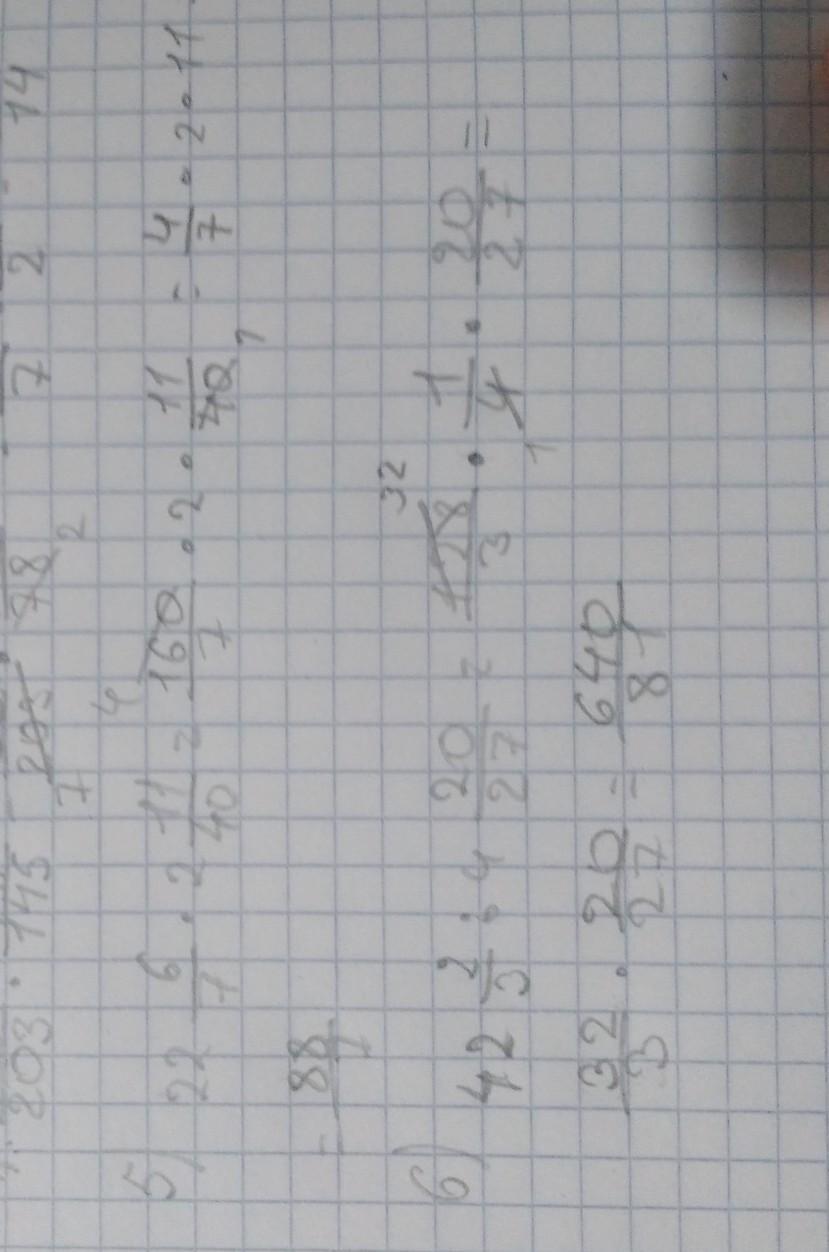 203 · 145 205 78 · 7 2 14
7 2
5) 22 6/7 · 2 11/40 = 160/7 · 2 · 11/40 = 4/7 · 2 · 11
4 1
= 88/7
6) 42 2/3 : 4 20/27 = 128/3 · 1/4 · 20/27 =
32 1
32/3 · 20/27 = 640/81